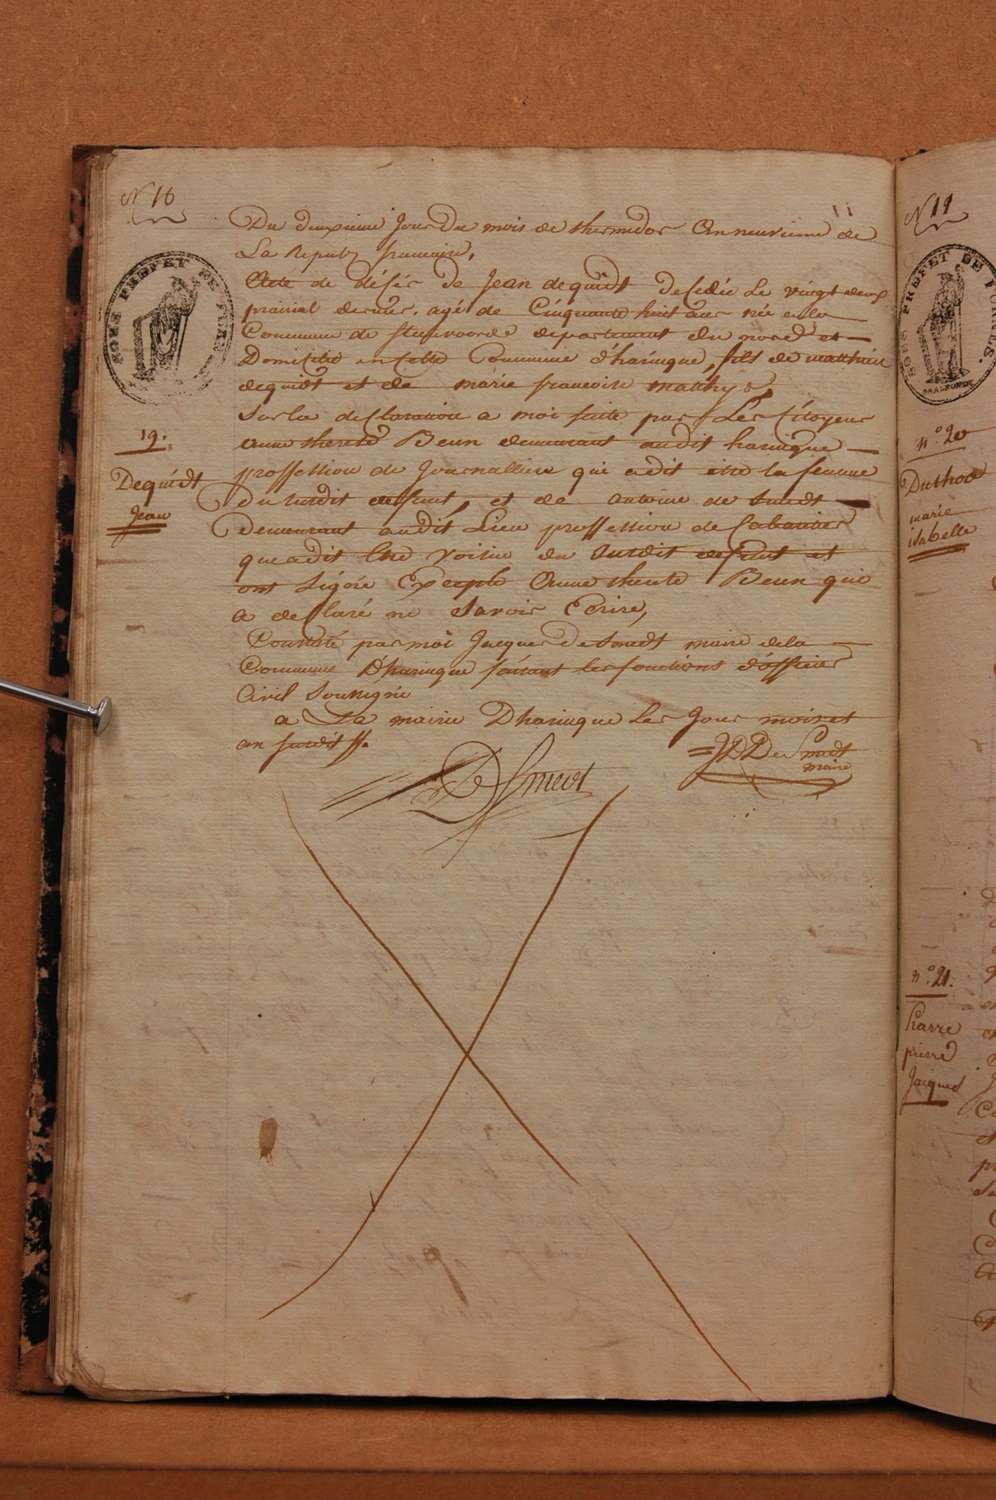 N 10
11
Du deuxieme Jour Du mois de thermidor an neuvieme de
La Republ francaise,
Acte de désés de Jean dequidt decedée Le vingt deux
prairial dernier, agé de Cinquante huit ans née en la
Commune de steenvoorde departement du nord et
Domicilié en cette Commune d'haringue, fils de matthieu
dequidt et de marie francoise matthys,
Sur la declaration a moi faite par Les Citoyens
anne therese Beun demeurant audit haringue
proffession de Journalliere qui a dit être la femme
Du surdit deffunt, et de antoine de Smedt
Demeurant audit Lieu proffession de Cabaretier
que a dit être voisin du Surdit deffunt et
ont signée Excepte anne therese Beun qui
a declaré ne Savoir Ecrire,
Constaté par moi Jacques De Smedt maire de la
Commune D'haringue faisant les fonctions d'officier
Civil Soussignée
a La mairie D'haringue les Jour mois et
an surdit
De Smedt
JDDe Smedt
maire
SOUS PREFET DE FURN
19.
Dequidt
Jean
N 11
SOUS PREFET DE FURNES.
n° 20
Duthoo
marie
isabelle
n° 21.
pierre
Jacques